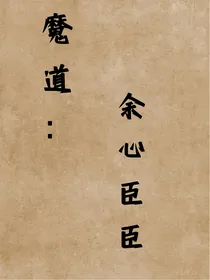 魔道：
余心臣臣